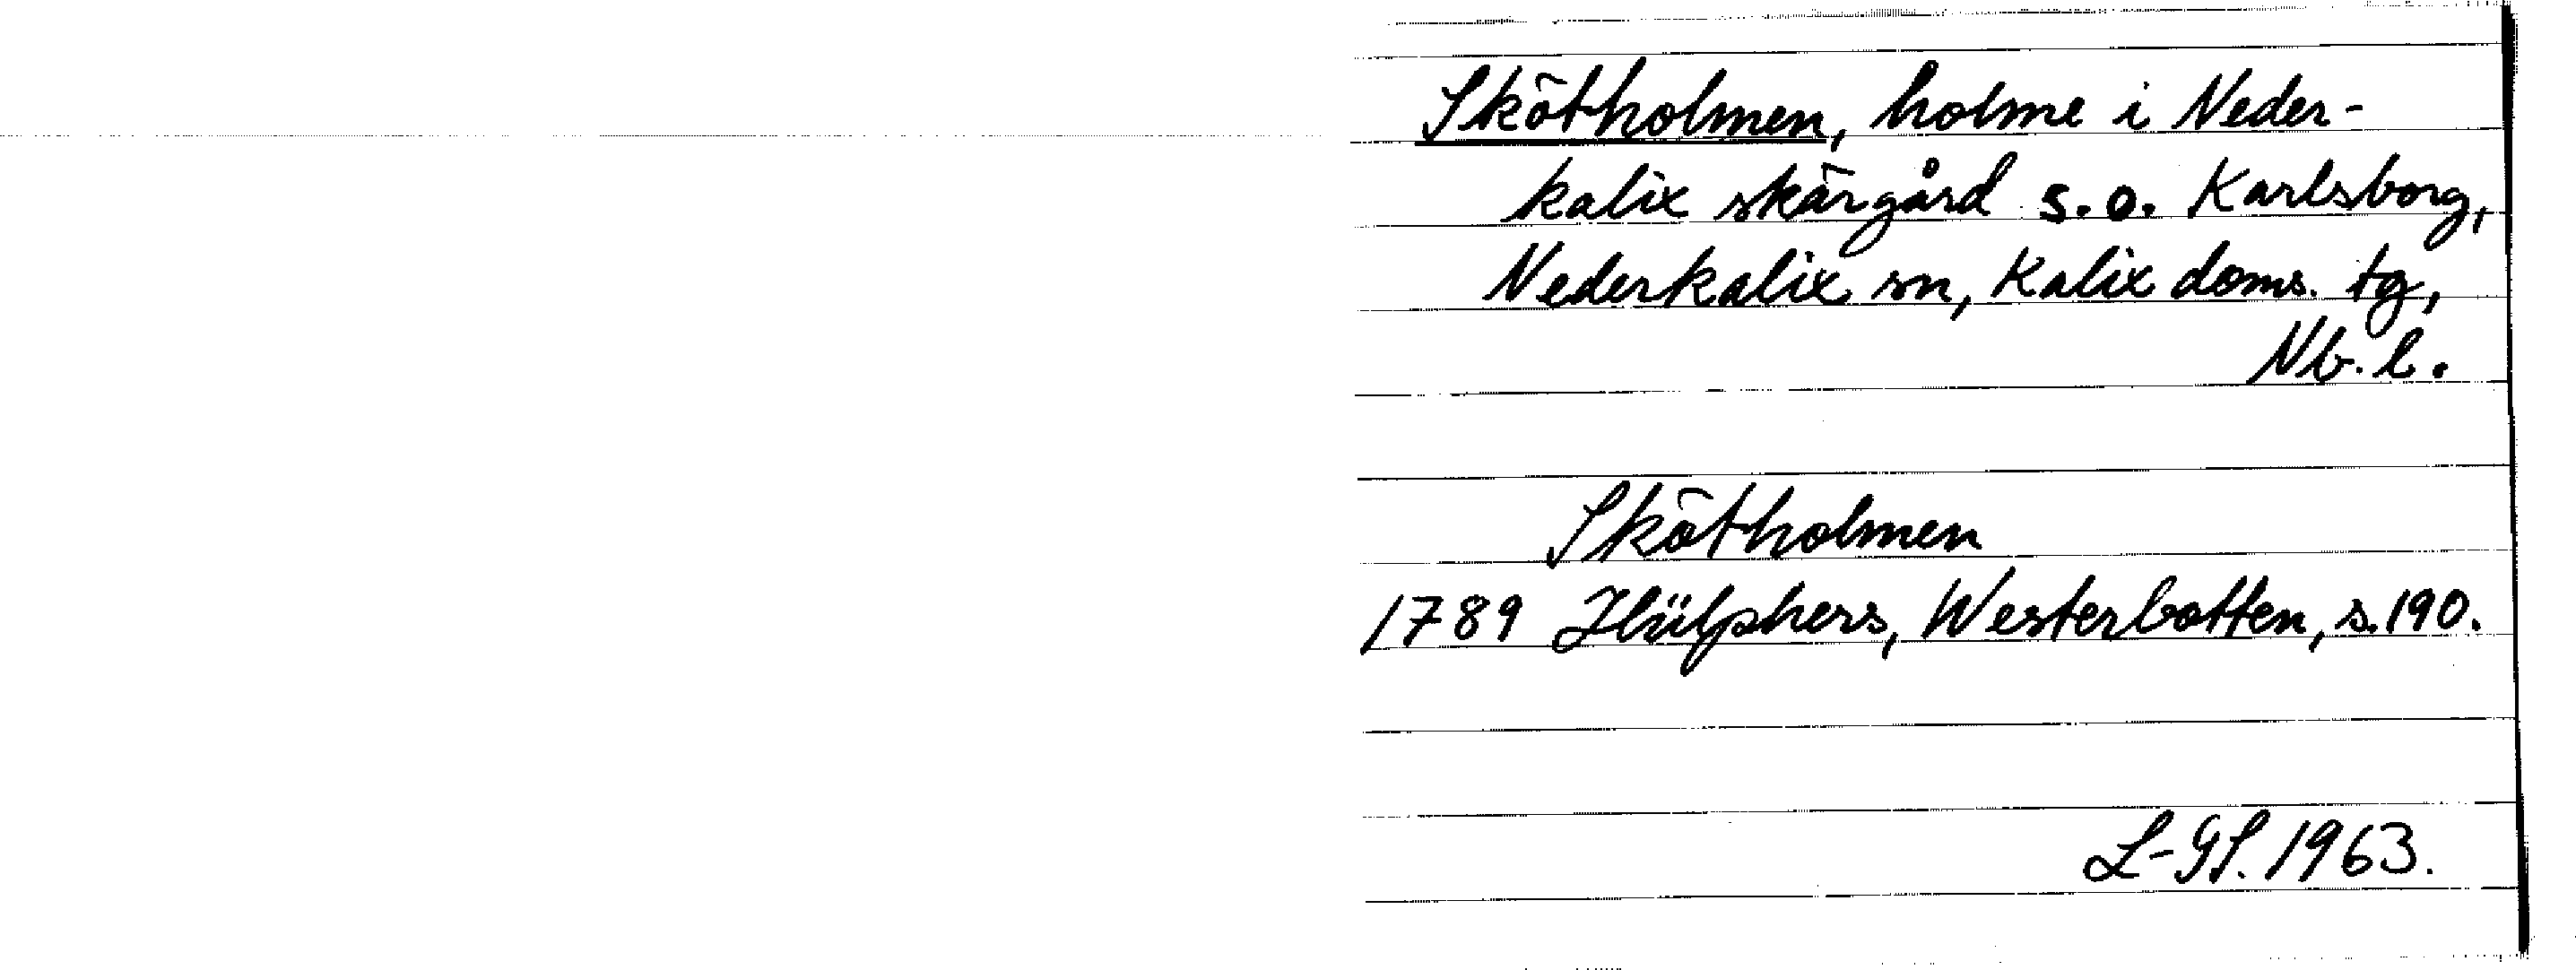 Skötholmen, holme i Neder-
kalix skärgård s.o. Karlsborg,
Nederkalix sn, Kalix doms. tg,
Nb. l.
Skötholmen
1789 Hülphers, Westerbotten, s. 190.
L-GS. 1963.